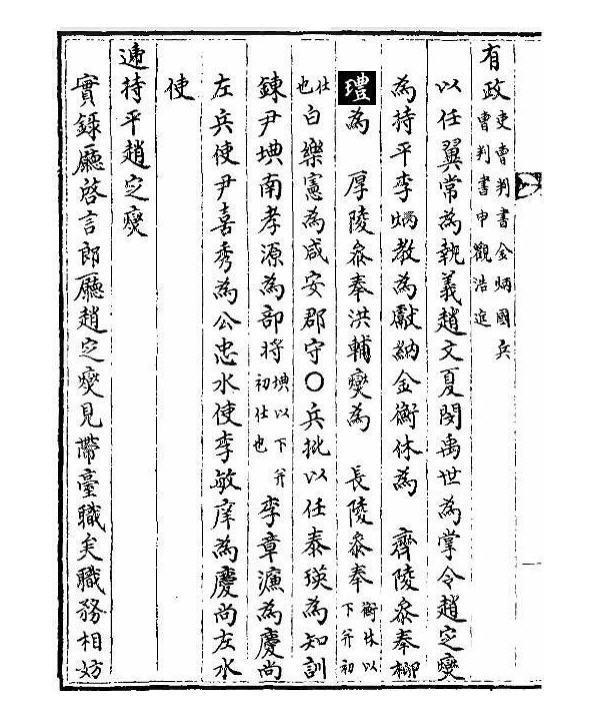 有政吏曹判書金炳國兵曹判書申觀浩進
以任翼常為執義趙文夏閔禹世為掌令趙定燮
為持平李炳教為獻納金衡休為 齊陵叅奉柳
為 厚陵叅奉洪輔燮為 長陵叅奉衡休以下并初
仕也白樂憲為咸安郡守○兵批以任泰瑛為知訓
鍊尹㙉南孝源為部將㙉以下并初仕也李章濂為慶尚
左兵使尹喜秀為公忠水使李敏庠為慶尚左水
使
遞持平趙定燮
實錄廳啓言郎廳趙定燮見帶臺職矣職務相妨